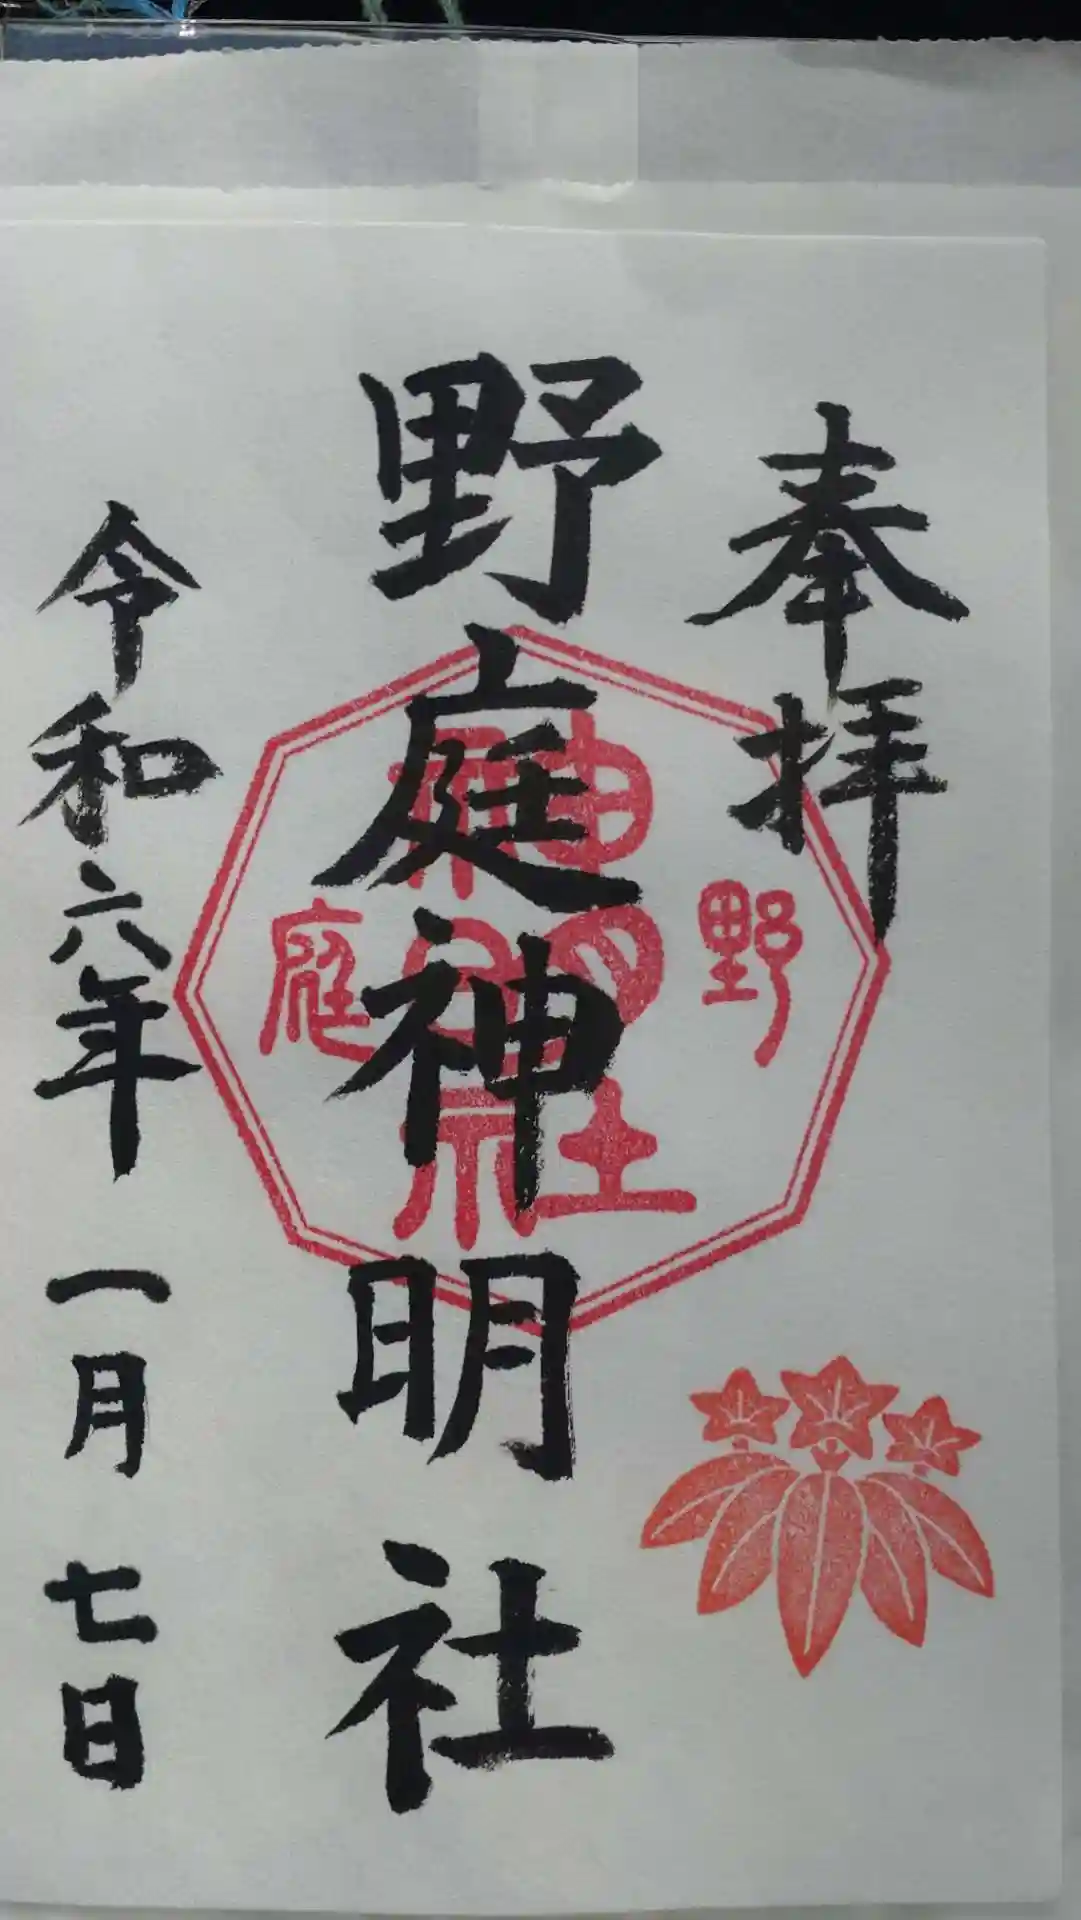 奉拝
野庭神明社
令和六年一月七日
野
神明社
庭